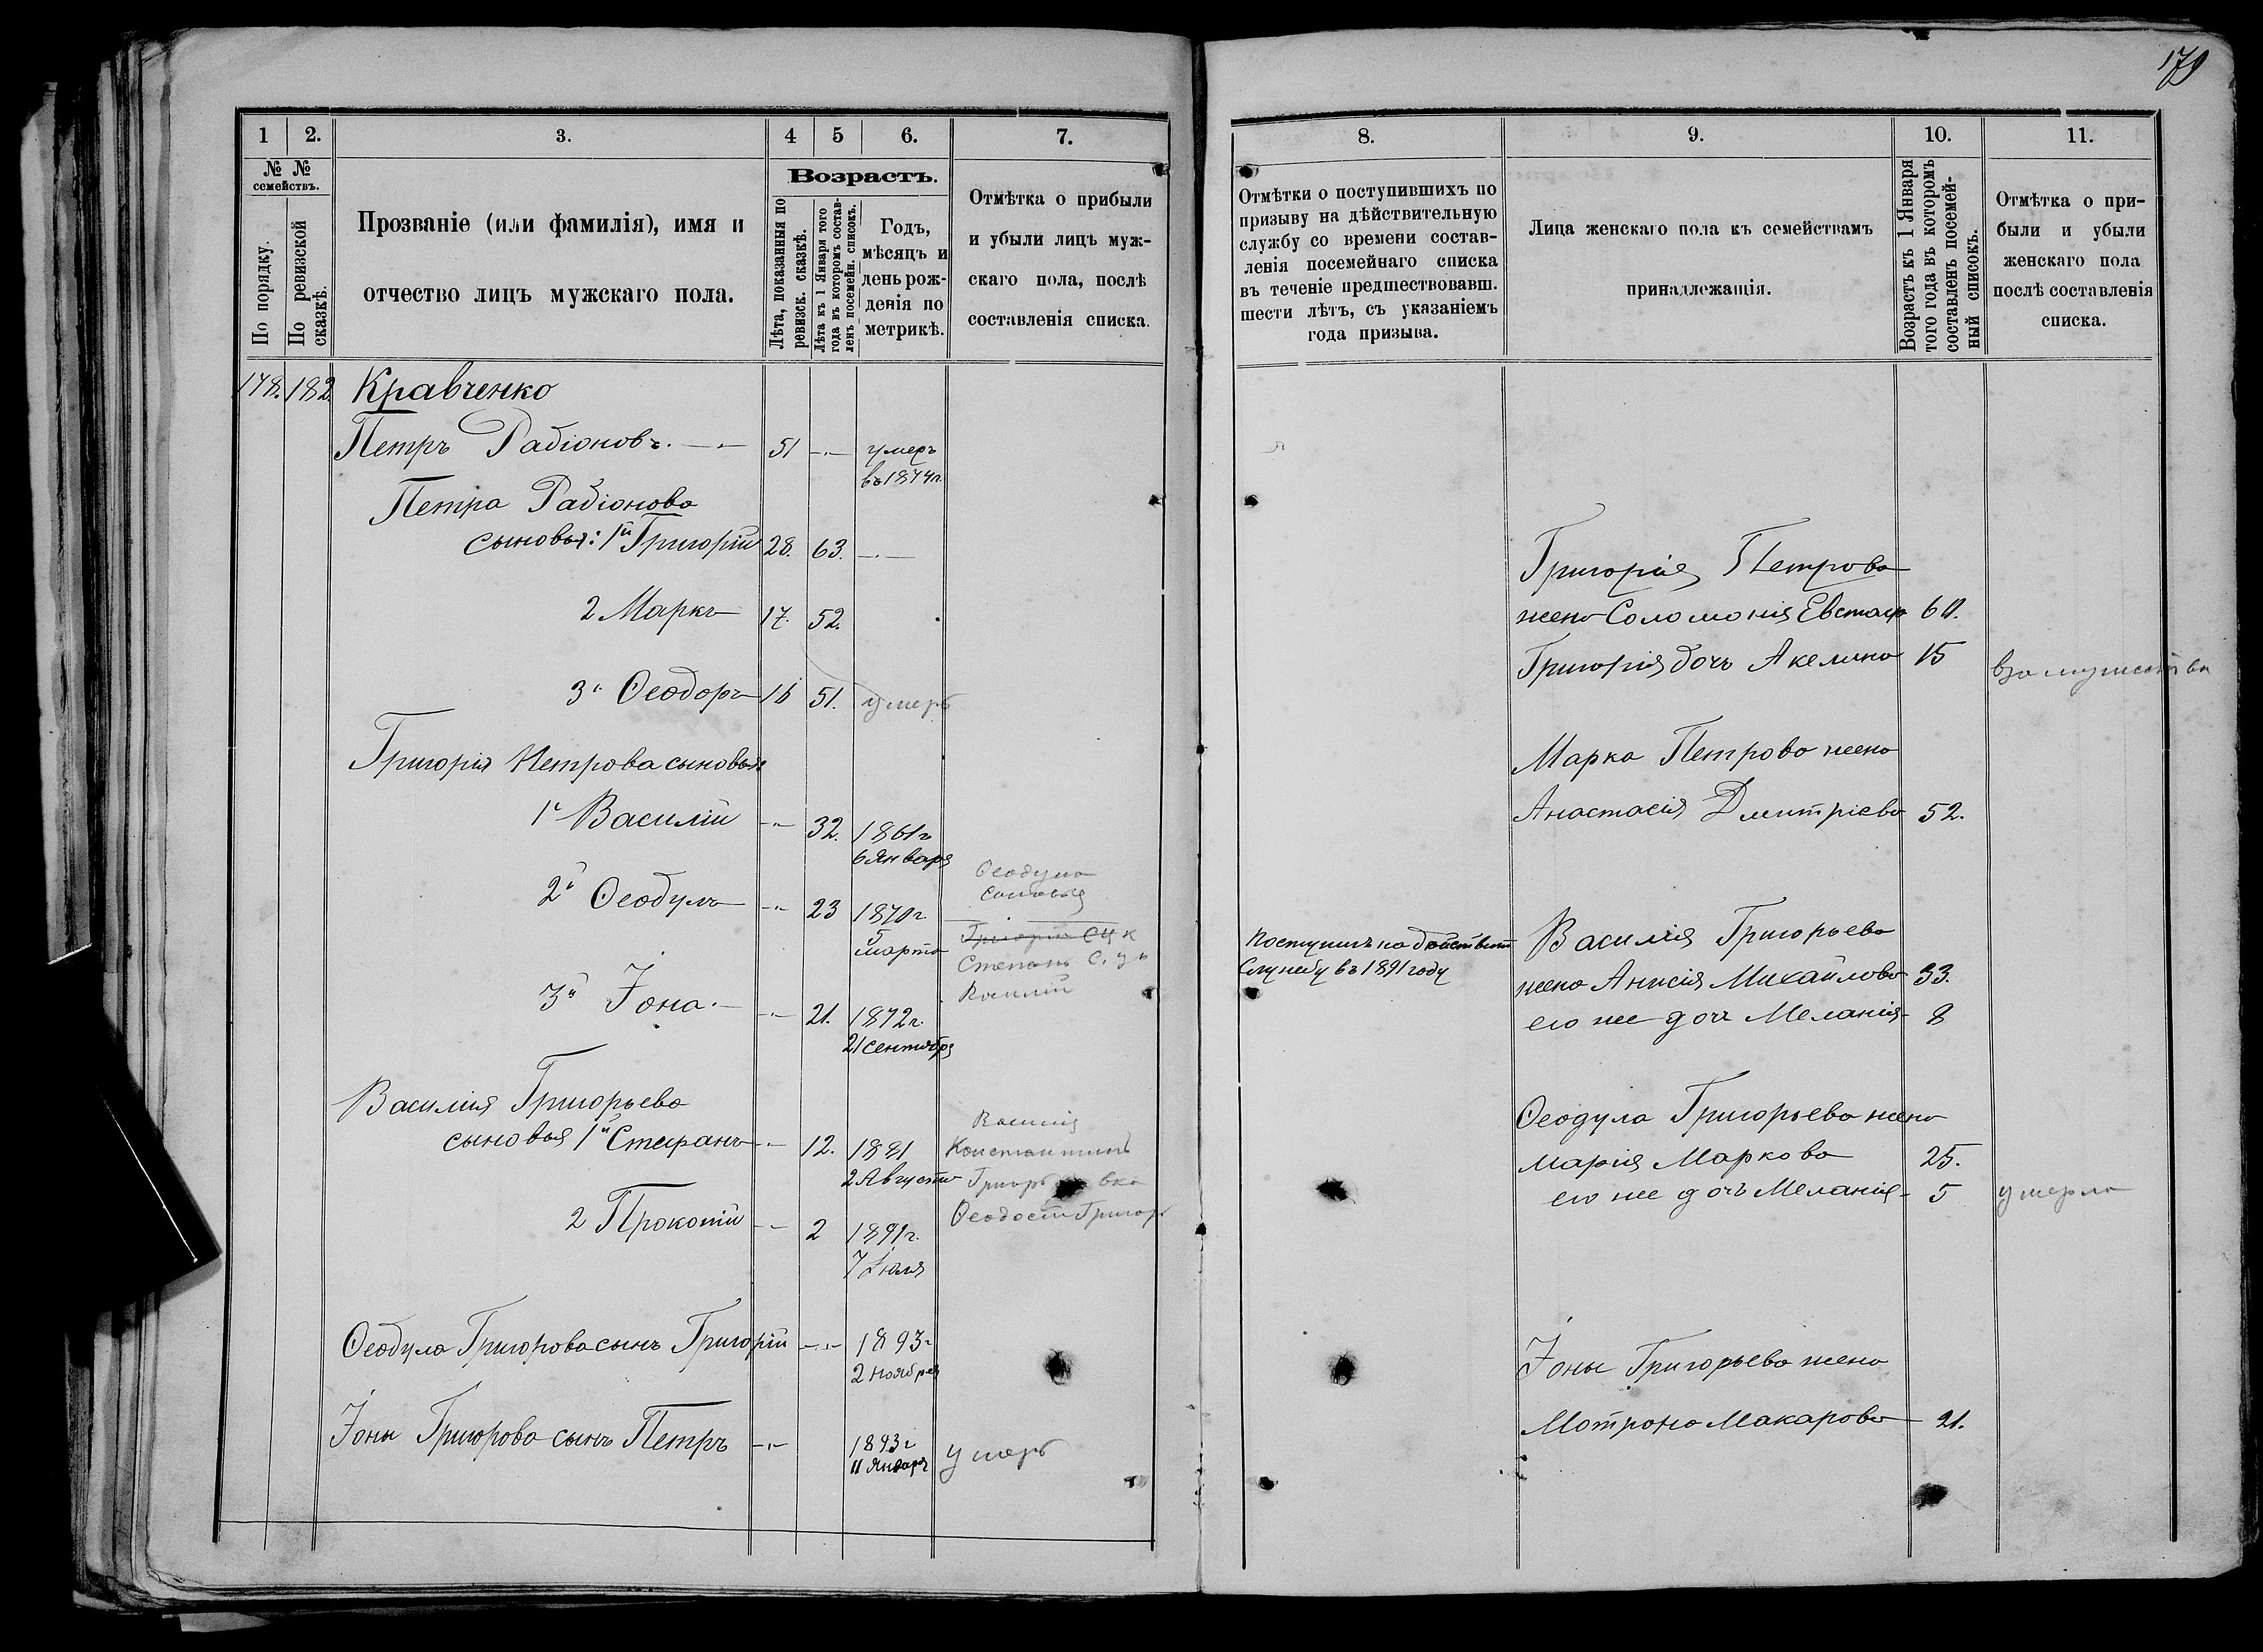 179
1
2.
3.
4
5
6.
7.
№ №
семействъ.
По порядку.
По ревизской
сказкѣ.
Прозваніе (или фамилія), имя и
отчество лицъ мужскаго пола.
Возрастъ.
Лѣта, показанныя по
ревизск. сказкѣ.
Лѣта къ 1 Января того
года въ которомъ состав-
ленъ посемейн. списокъ.
Годъ,
мѣсяцъ и
день рож-
денія по
метрикѣ.
Отмѣтка о прибыли
и убыли лицъ муж-
скаго пола, послѣ
составленія списка.
178. 182. Кравченко
Петръ Радіоновъ. 51 умеръ
въ 1874г.
Петра Радіонова
сыновья: 1й Григорій 28. 63.
2 Маркъ 17. 52.
3й Ѳеодоръ 16 51. умеръ
Григорія Петрова сыновья:
1й Василій 32. 1861г
6 Января
2й Ѳеодулъ 23 1870г.
5
марта
Ѳеодула
сыновья
Григорій
Степанъ
Василій
3й Іона. 21. 1872г.
21 сентября
Василія Григорьева
сыновья 1й Стефанъ 12. 1881
2 Августа
Василія
Константинъ
Ѳеодост Григор
2 Прокопій 2 1891г.
7 Іюля
Ѳеодула Григорова сынъ Григорій 1893г
2 Ноября
Іоны Григорова сынъ Петръ 1893г
11 Января умеръ
8.
9.
10.
11.
Отмѣтки о поступившихъ по
призыву на дѣйствительную
службу со времени состав-
ленія посемейнаго списка
въ теченіе предшествовавш.
шести лѣтъ, съ указаніемъ
года призыва.
Лица женскаго пола къ семействамъ
принадлежащія.
Возрастъ къ 1 Января
того года въ которомъ
составленъ посемей-
ный списокъ.
Отмѣтка о при-
были и убыли
женскаго пола
послѣ составленія
списка.
Григорія Петрова
жена Соломонія Евстаф 60.
Григорія дочь Акелина 15 взамужествѣ
Марка Петрова жена
Анастасія Дмитріева 52.
Поступилъ на дѣйствит
Службу въ 1891 году
Василія Григорьева
жена Анисія Михайлова 33.
его же доч Меланія 8
Ѳеодула Григорьева жена
Марія Маркова 25.
его же дочь Меланія 5 умерла
Іоны Григорьева жена
Мотрона Макарова 21.